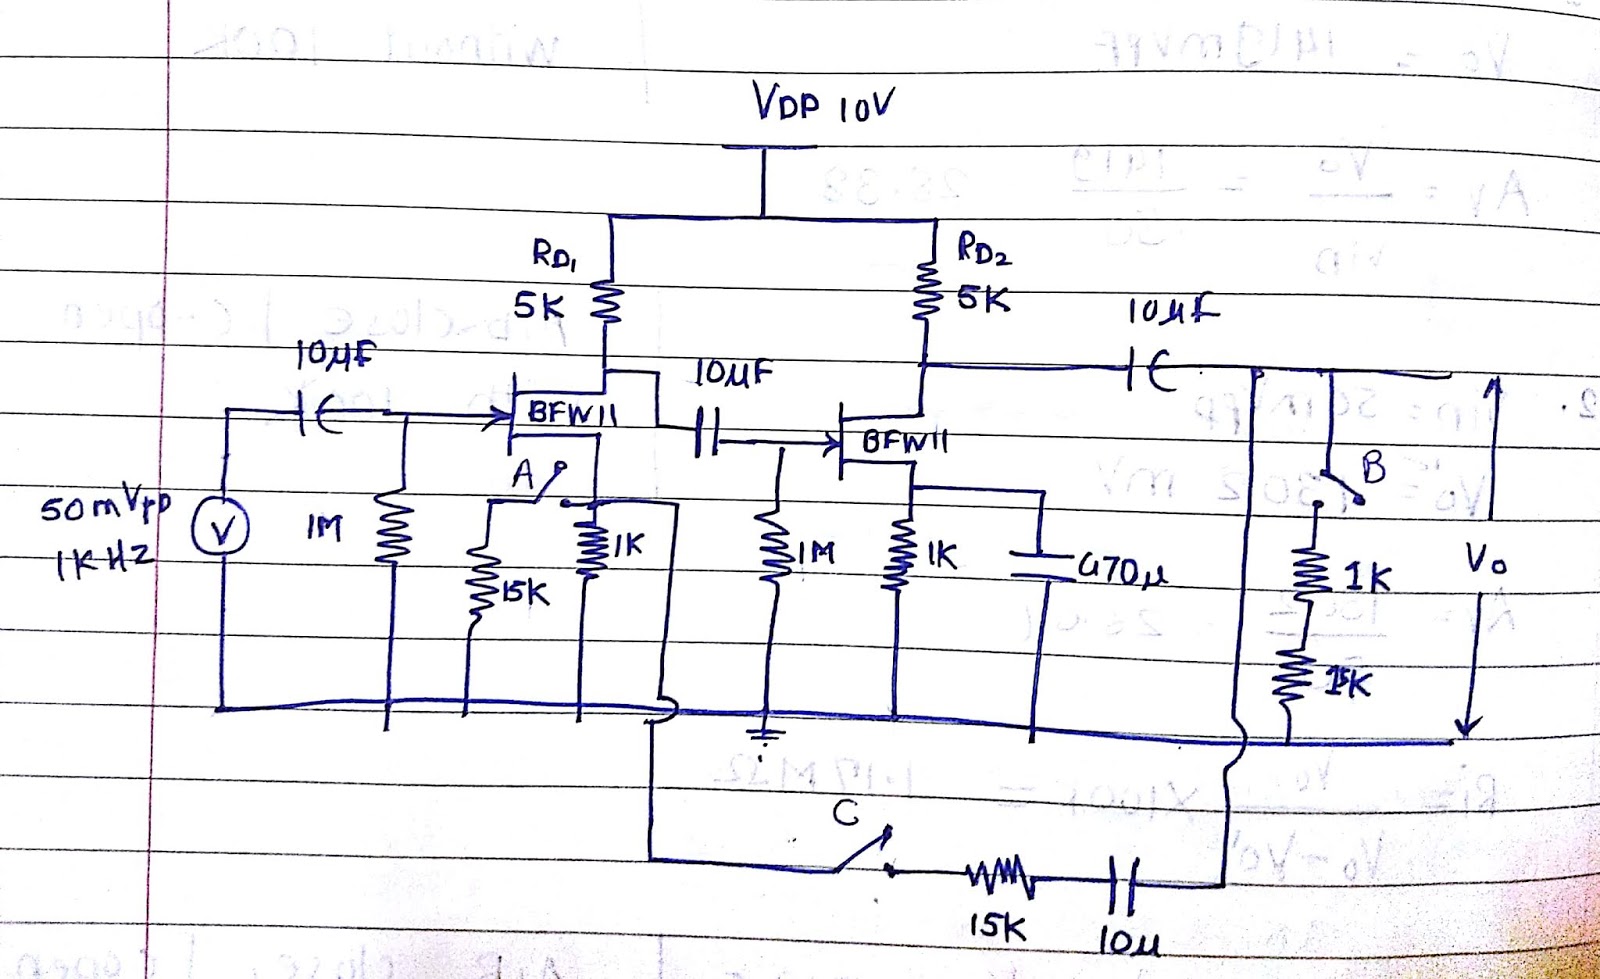 VDD 10V
RD1
5K
RD2
5K
10µF
10µF
10µF
BFW11
BFW11
A
B
50mVpp
1KHz
V
1M
15K
1K
1M
1K
470µ
1K
Vo
C
15K
10µ